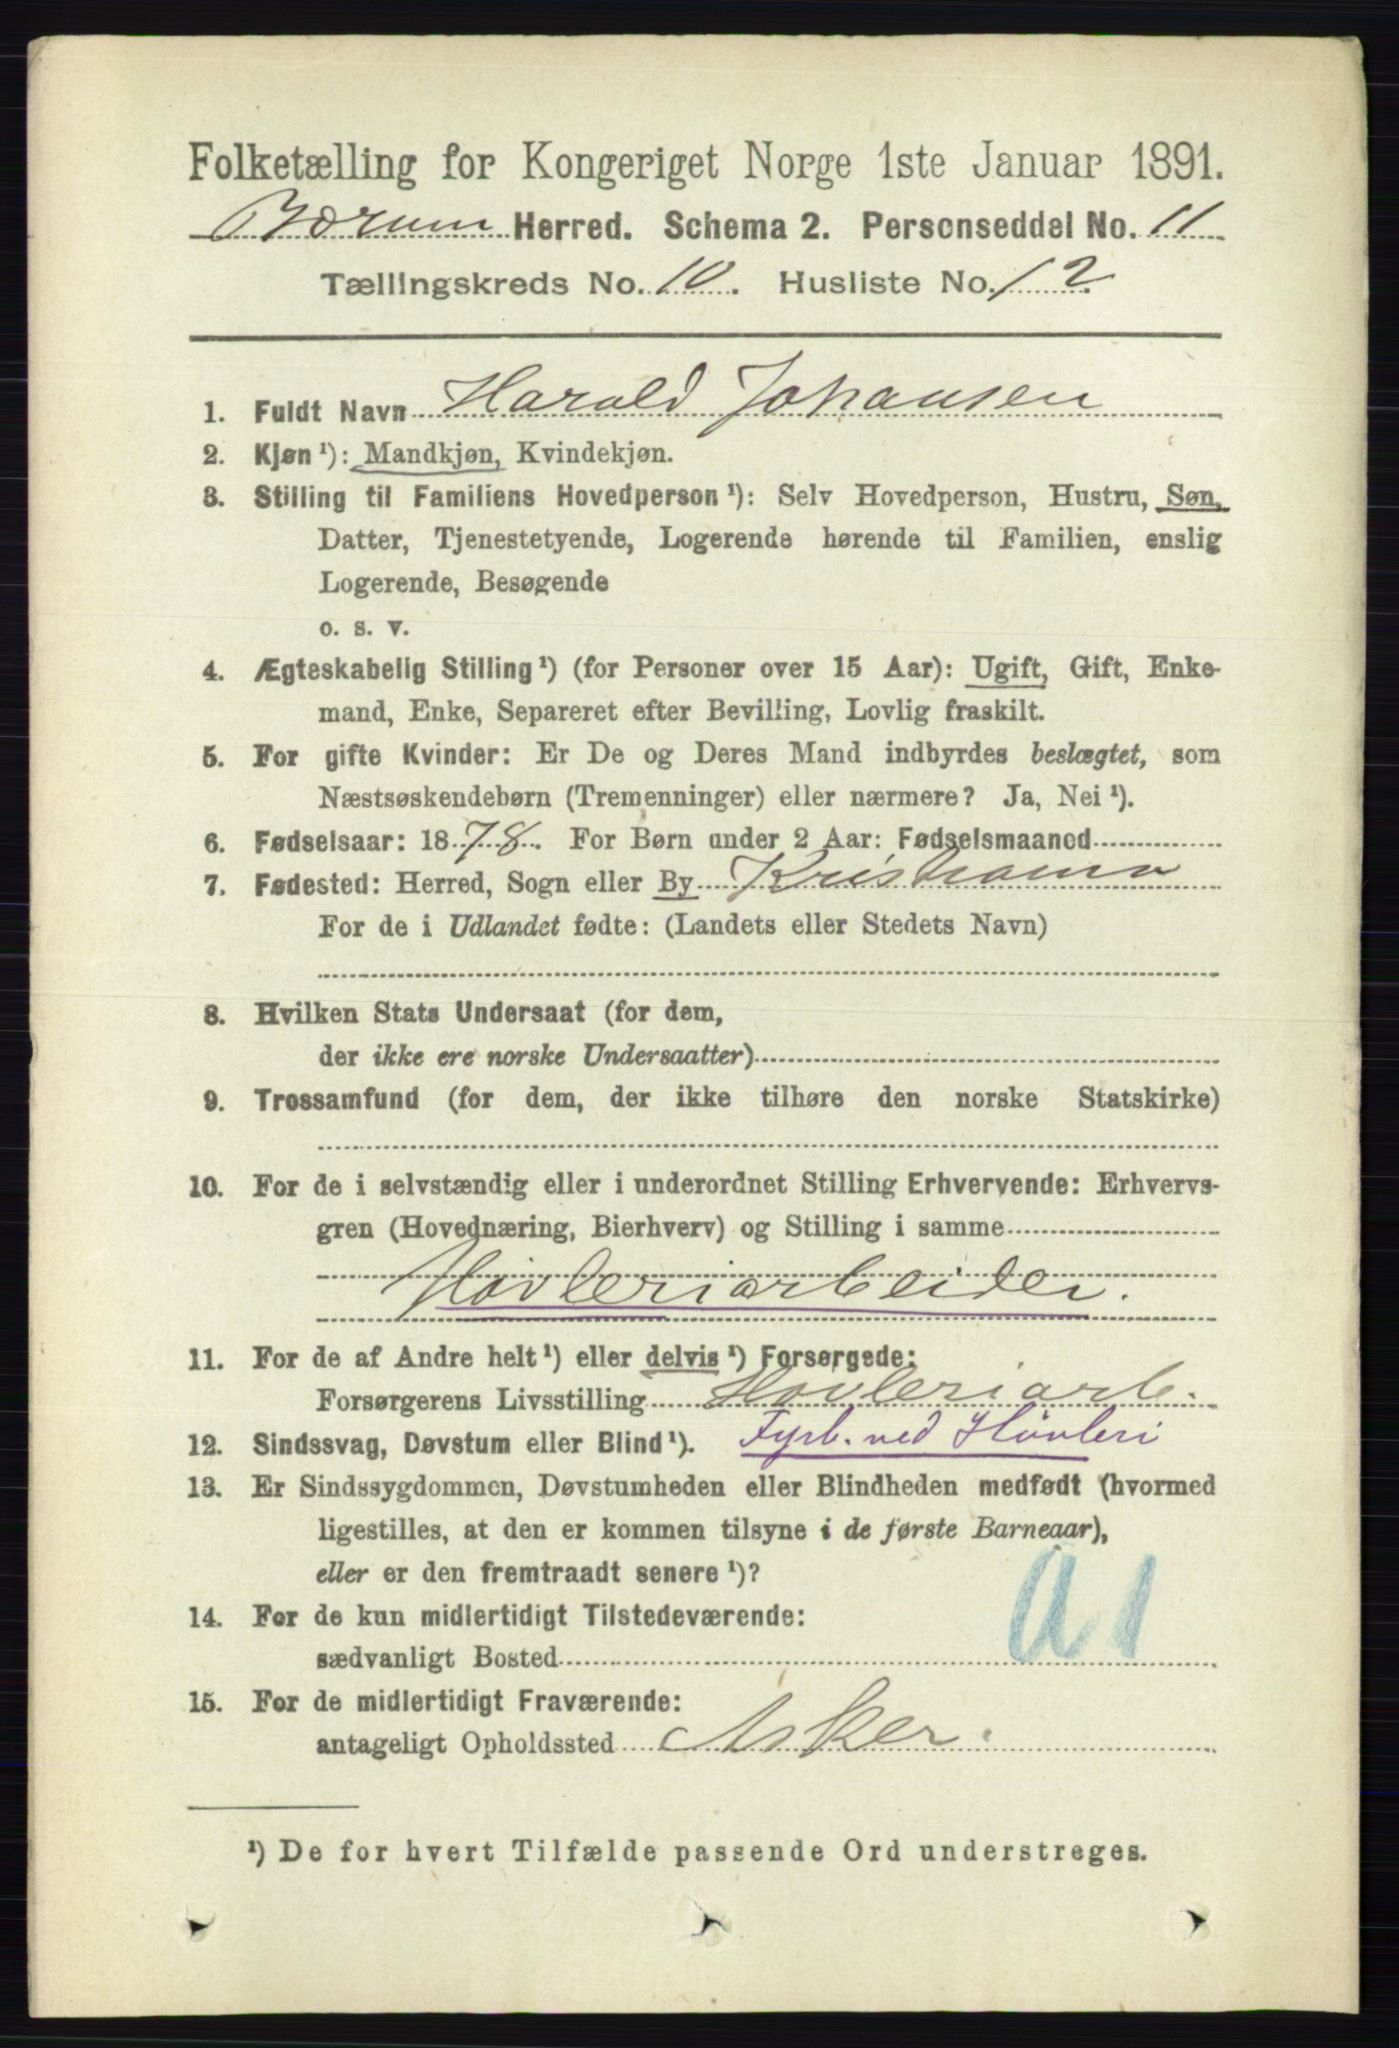 Folketælling for Kongeriget Norge 1ste Januar 1891.
Bærum Herred. Schema 2. Personseddel No. 11
Tællingskreds No. 10. Husliste No. 12
1. Fuldt Navn Harald Johansen
2. Kjøn ¹): Mandkjøn, Kvindekjøn.
3. Stilling til Familiens Hovedperson ¹): Selv Hovedperson, Hustru, Søn,
Datter, Tjenestetyende, Logerende hørende til Familien, enslig
Logerende, Besøgende
o. s. v.
4. Ægteskabelig Stilling ¹) (for Personer over 15 Aar): Ugift, Gift, Enke-
mand, Enke, Separeret efter Bevilling, Lovlig fraskilt.
5. For gifte Kvinder: Er De og Deres Mand indbyrdes beslægtet, som
Næstsøskendebørn (Tremenninger) eller nærmere? Ja, Nei ¹).
6. Fødselsaar: 1878. For Børn under 2 Aar: Fødselsmaaned
7. Fødested: Herred, Sogn eller By Kristiania
For de i Udlandet fødte: (Landets eller Stedets Navn)
8. Hvilken Stats Undersaat (for dem,
der ikke ere norske Undersaatter)
9. Trossamfund (for dem, der ikke tilhøre den norske Statskirke)
10. For de i selvstændig eller i underordnet Stilling Erhvervende: Erhvervs-
gren (Hovednæring, Bierhverv) og Stilling i samme
Høvleriarbeider.
11. For de af Andre helt ¹) eller delvis ¹) Forsørgede:
Forsørgerens Livsstilling Høvleriarb.
12. Sindssvag, Døvstum eller Blind ¹). Fyrb. ved Høvleri
13. Er Sindssygdommen, Døvstumheden eller Blindheden medfødt (hvormed
ligestilles, at den er kommen tilsyne i de første Barneaar),
eller er den fremtraadt senere ¹)?
14. For de kun midlertidigt Tilstedeværende:
sædvanligt Bosted
a 1
15. For de midlertidigt Fraværende:
antageligt Opholdssted Asker.
¹) De for hvert Tilfælde passende Ord understreges.